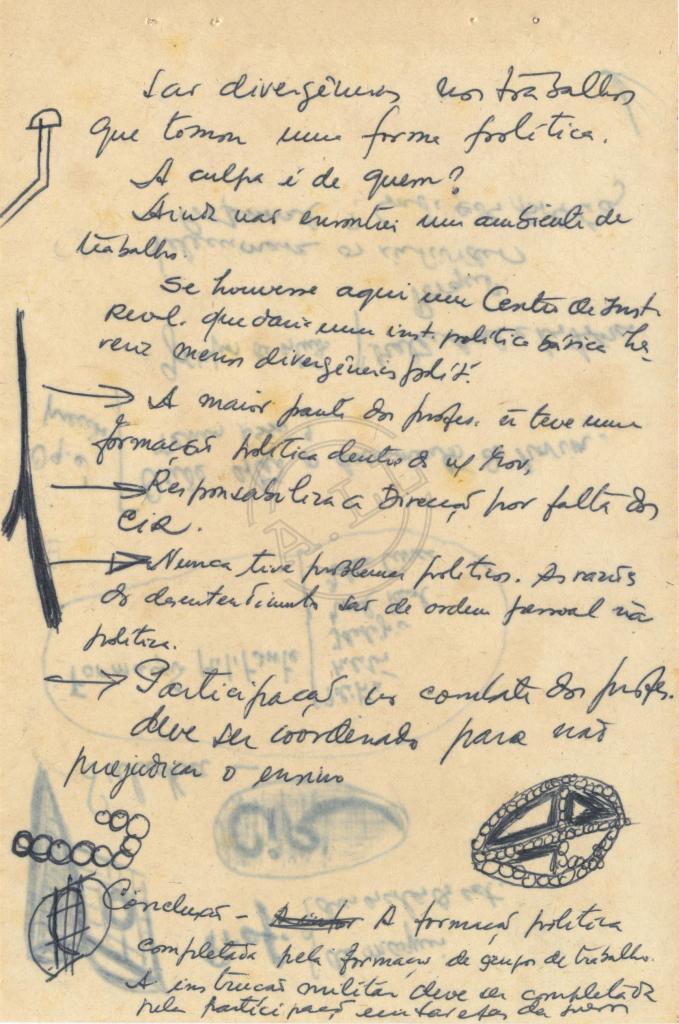 São divergências nos trabalhos
que tomou uma forma política.
A culpa é de quem?
Ainda não encontrei um ambiente de
trabalho.
Se houvesse aqui um Centro de Inst.
Revol. que daria uma inst. política básica ha-
veria menos divergências polít.
A maior parte dos profes. ñ teve uma
formação política dentro do Mov.
Responsabiliza a Direcção por falta dos
CIR.
Nunca tive problemas políticos. As razões
do desentendimento são de ordem pessoal não
política.
Participação no combate dos profes.
deve ser coordenado para não
prejudicar o ensino
CIR
Conclusão - A formação política
completada pela formação de grupos de trabalho.
A instrução militar deve ser completada
pela participação em tarefas da guerra